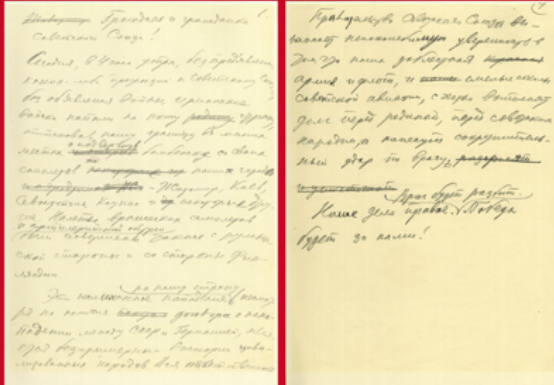 Граждане и гражданки 1.
Советского Союза!
Сегодня, в 4 часа утра, без предъявления
каких-либо претензий к Советскому Союзу
без объявления войны, германские
войска напали на нашу страну,
атаковали нашу границу во многих
местах и подвергли бомбежке со своих
самолетов наши города
Житомир, Киев,
Севастополь, Каунас и некоторые дру-
гие. Налеты вражеских самолетов
и артиллерийский обстрел
были совершены также с румын-
ской стороны и со стороны Фин-
ляндии.
на нашу страну
Это неслыханное нападение,
ря на договора о нена-
падении между СССР и Германией, явля-
ется беспримерным в истории циви-
лизованных народов Вся ответственно
Правительство Советского Союза вы-
ражает непоколебимую уверенность в
том, что наша доблестная
армия и флот, и смелые соколы
советской авиации, с честью выполнят
долг перед родиной, перед советским
народом, и нанесут сокрушитель-
ный удар по врагу,
Враг будет разбит.
Наше дело правое. Победа
будет за нами!